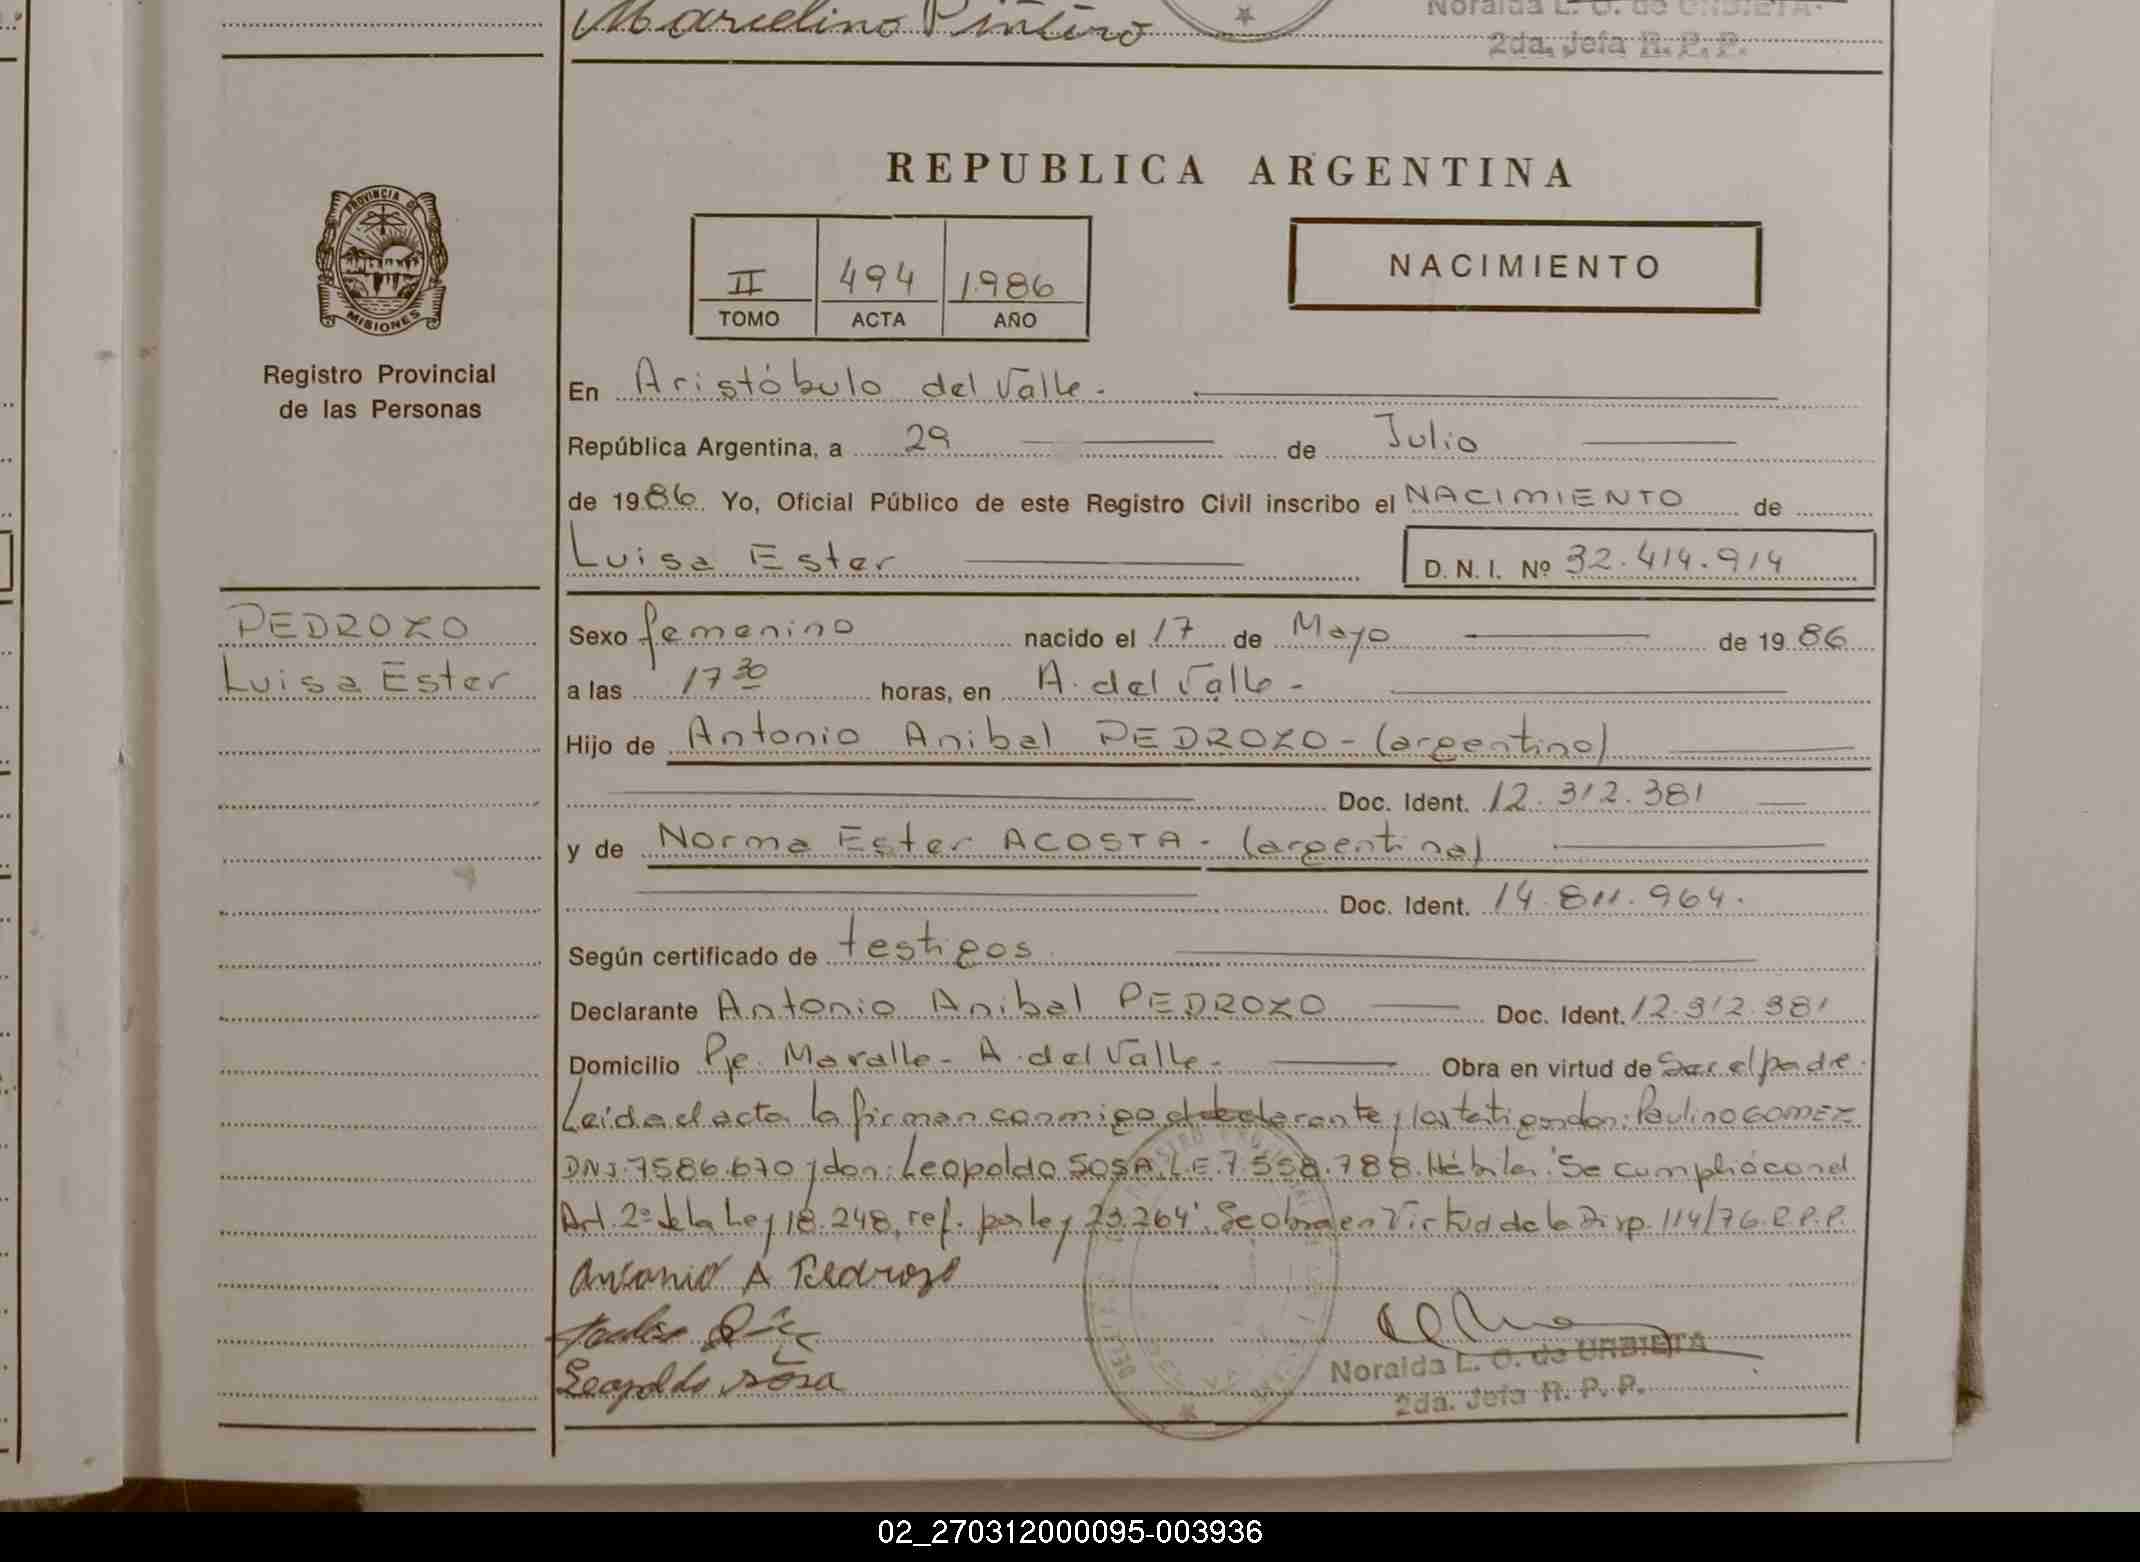 Marcelino Piñeiro
Noralda L. O. de URBIETA
2da. Jefa R. P. P.
REPUBLICA ARGENTINA
PROVINCIA DE
MISIONES
Registro Provincial
de las Personas
II 494 1986
TOMO ACTA AÑO
NACIMIENTO
En Aristóbulo del Valle.
República Argentina, a 29 de Julio
de 1986. Yo, Oficial Público de este Registro Civil inscribo el NACIMIENTO de
Luisa Ester D. N. I. Nº 32.414.914
PEDROZO
Luisa Ester
Sexo femenino nacido el 17 de Mayo de 1986
a las 17 30 horas, en A. del Valle-
Hijo de Antonio Anibal PEDROZO - (argentino)
Doc. Ident. 12.312.381
y de Norma Ester ACOSTA - (argentina)
Doc. Ident. 14.811.964.
Según certificado de testigos
Declarante Antonio Anibal PEDROZO Doc. Ident. 12.312.381
Domicilio Pje. Maralle - A. del Valle - Obra en virtud de Ser el padre.
Leída el acta la firman conmigo el declarante y los testigos don: Paulino GOMEZ
DNI. 7586.670 y don: Leopoldo SOSA, L.E. 7.558.788. Hábiles. "Se cumplió con el
Art. 2º de la Ley 18.248, ref. por ley 23.264". Se obra en Virtud de la Disp. 114/76. R.P.P.
Antonio A Pedrozo
Leopoldo Sosa
Noralda L. O. de URBIETA
2da. Jefa R. P. P.
02_270312000095-003936